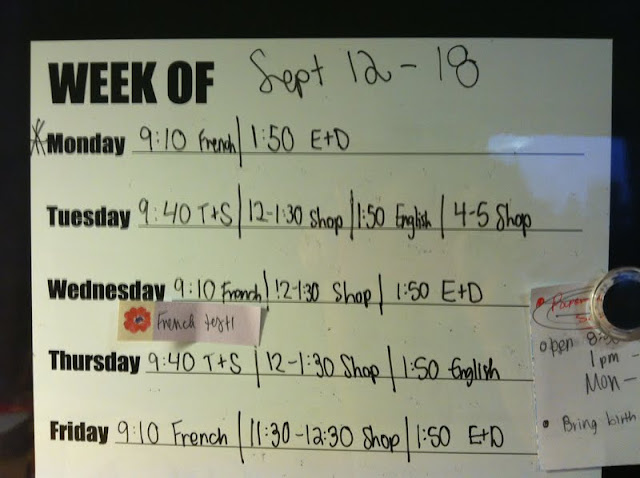 WEEK OF Sept 12 - 18
* Monday 9:10 French | 1:50 E+D
Tuesday 9:40 T+S | 12-1:30 Shop | 1:50 English | 4-5 Shop
Wednesday 9:10 French | 12-1:30 Shop | 1:50 E+D
French test!
Thursday 9:40 T+S | 12-1:30 Shop | 1:50 English
Friday 9:10 French | 11:30-12:30 Shop | 1:50 E+D
open
1pm -
Mon -
• Bring birth